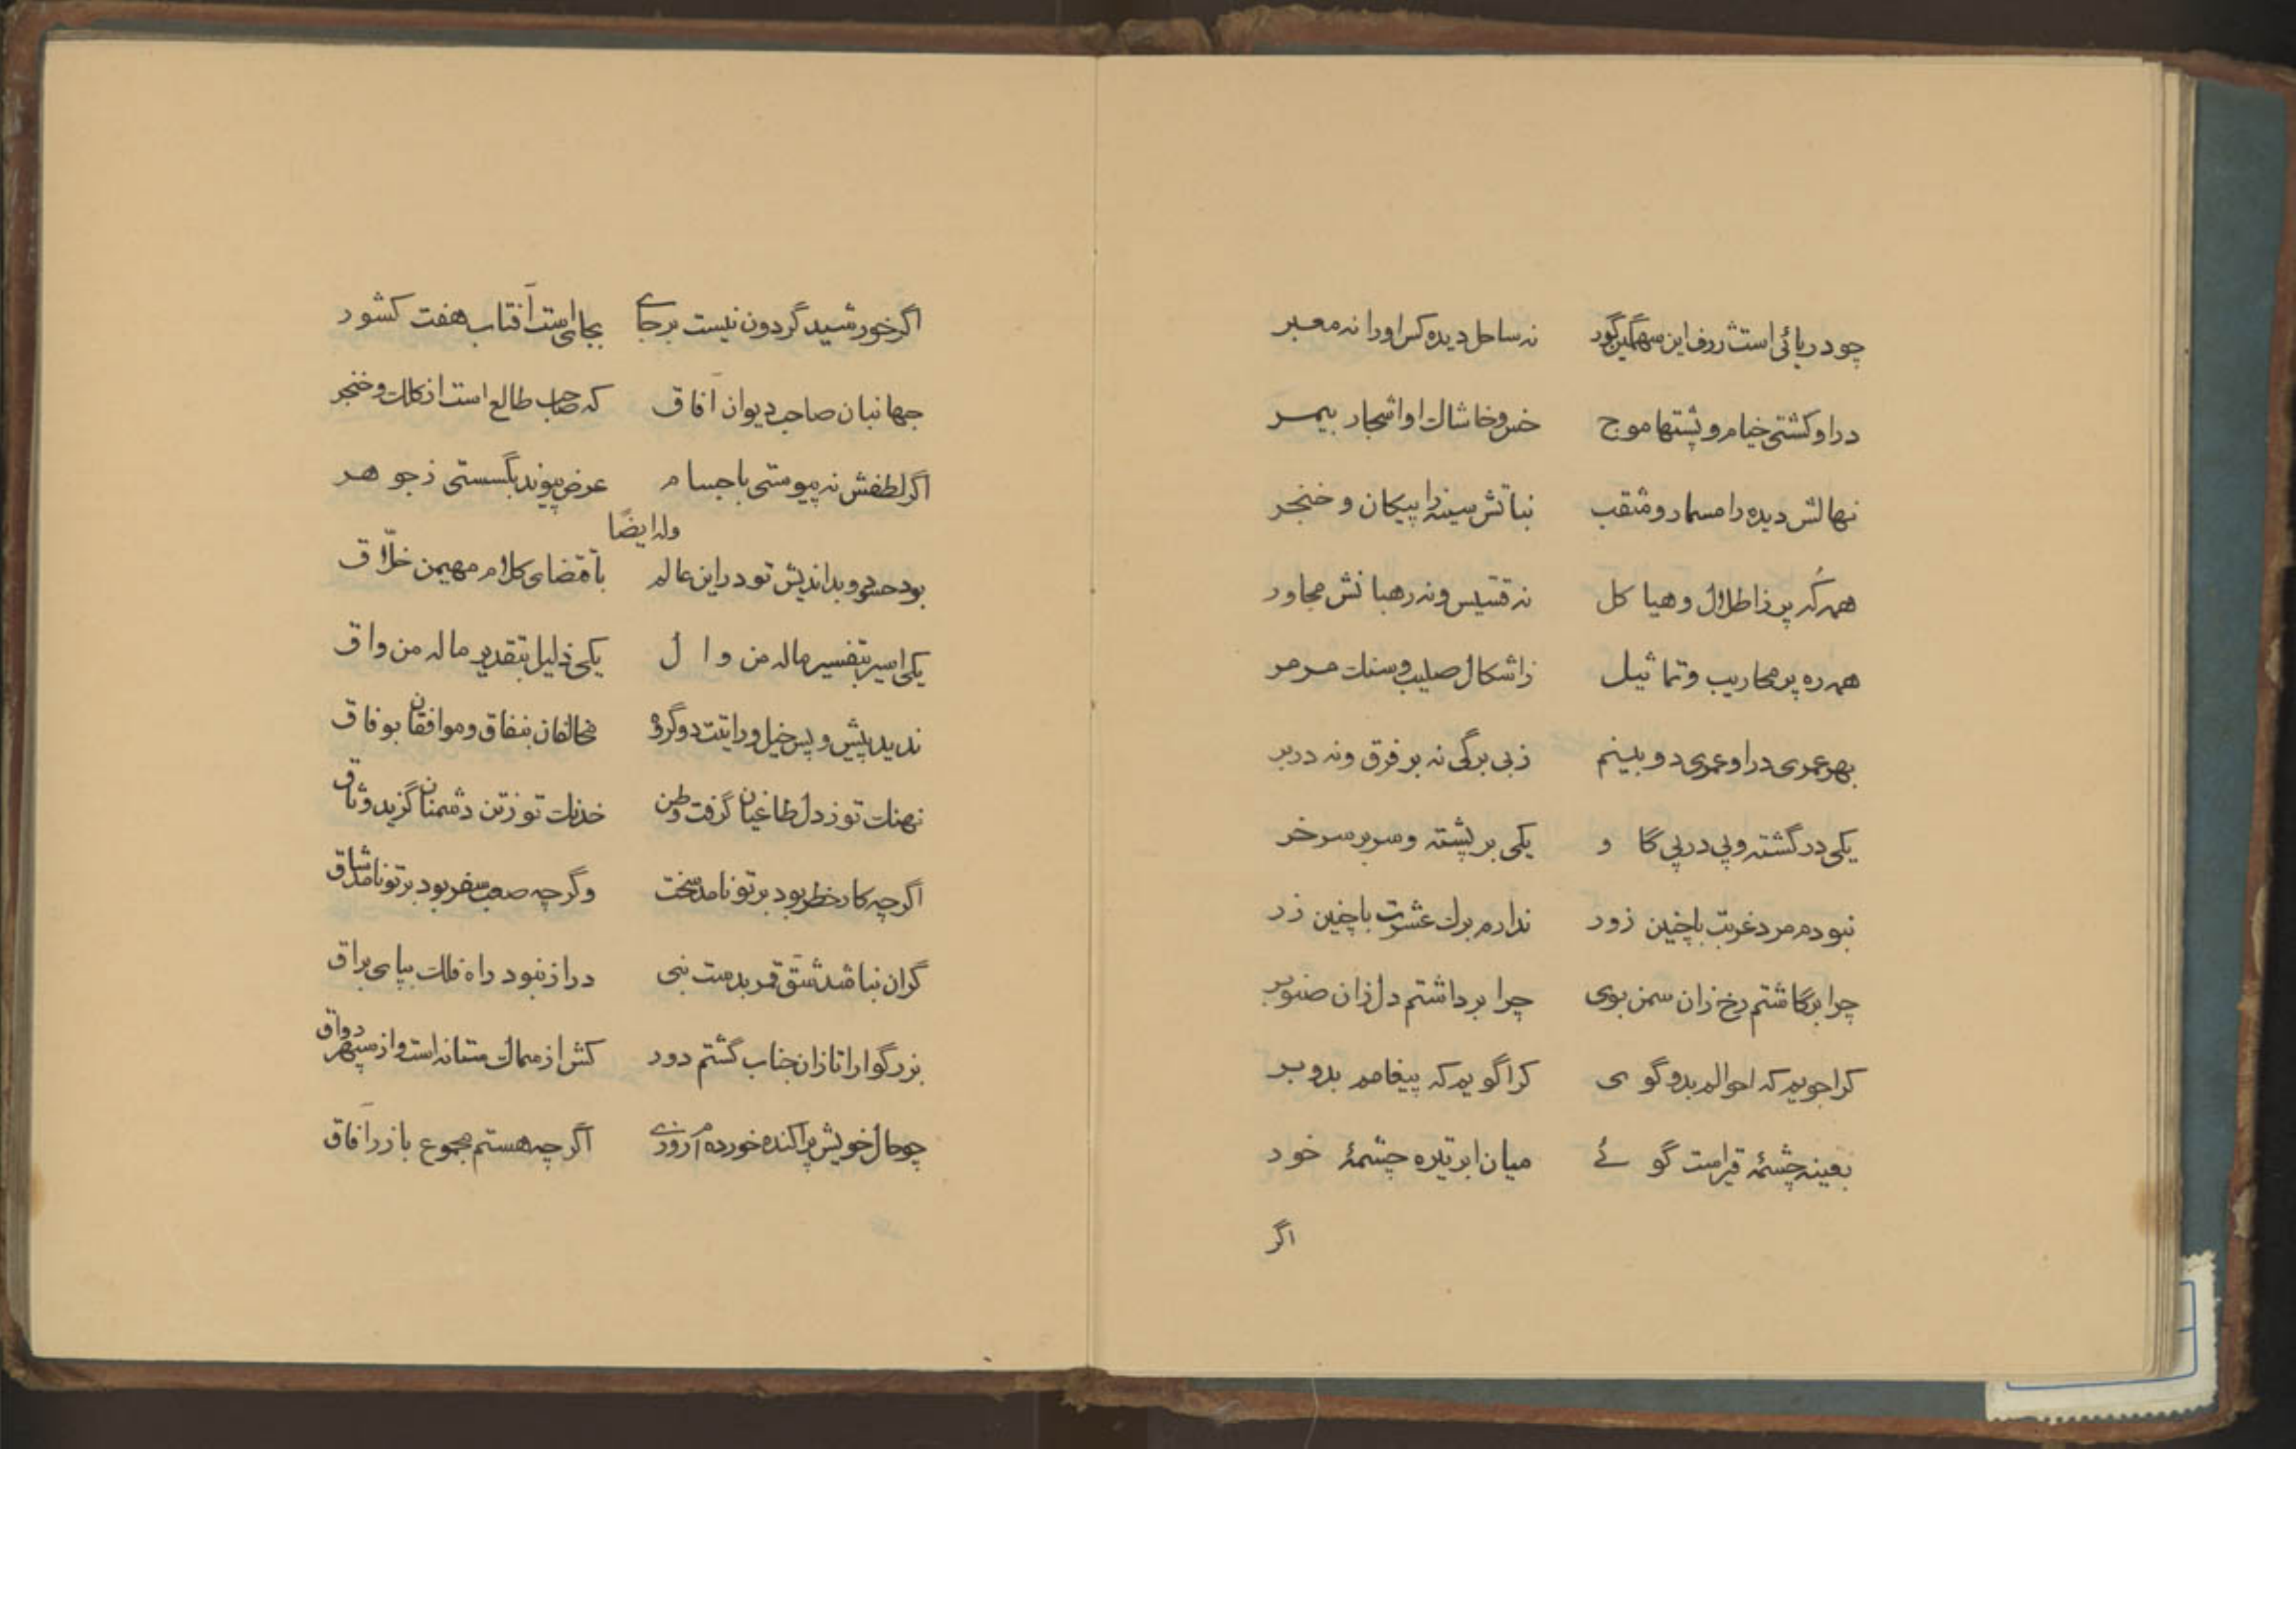 چو دریائی است ژرف این سهمگین گود نه ساحل دیده کس او را نه معبر
در او کشتی خیام و پشتها موج خس و خاشاک او اشجار بیمر
نهالش دیده را مسمار و مثقب نباتش سینه را پیکان و خنجر
همه که پر ز اطلال و هیا کل نه قسیس و نه رهبانش مجاور
همه ره پر محاریب و تما ثیل ز اشکال صلیب و سنک مرمر
بهر عمری در او عمری دو بینم ز بی برگی نه بر فرق و نه در بر
یکی در گشته و پی در پی گا و یکی بر پشته و سر بر سر خر
نبودم مرد غربت با چنین زور ندارم برک عشرت با چنین زر
چرا برگاشتم رخ زان سمن بوی چرا برداشتم دل زان صنوبر
کرا جویم که احوالم بدو گو ی کرا گویم که پیغامم بدو بر
بعینه چشمهٔ قیر است گو ئے میان ابر تیره چشمهٔ خو د
اگر
اگر خورشید گردون نیست بر جای بجای است آفتاب هفت کشور
جهانبان صاحب دیوان آفاق که صاحب طالع است از کلک و خنجر
اگر لطفش نه پیوستی با جسام عرض پیوند بگسستی ز جو هر
وله ایضًا
بود حسود و بداندیش تو در این عالم باقتضای کلام مهیمن خلّاق
یکی اسیر بتفسیر ماله من وا ل یکی ذلیل بتقدیر ماله من واق
ندید پیش و پس خیل و رایتت دو گروه مخالفان بنفاق و موافقان بوفاق
نهنک تو ز دل طاغیان گرفت وطن خدنک تو ز تن دشمنان گزید وثاق
اگرچه کار خطر بود بر تو نامد سخت وگرچه صعب سفر بود بر تو نامد شاق
گران نباشد شق قمر بدست نبی دراز نبود راه فلک بپای براق
بزرگوارا تا زان جناب گشتم دور کش از سماک ستانه است و از سپهر رواق
چو حال خویش پراکنده خورده ام روزی اگرچه هستم مجموع باز رآفاق